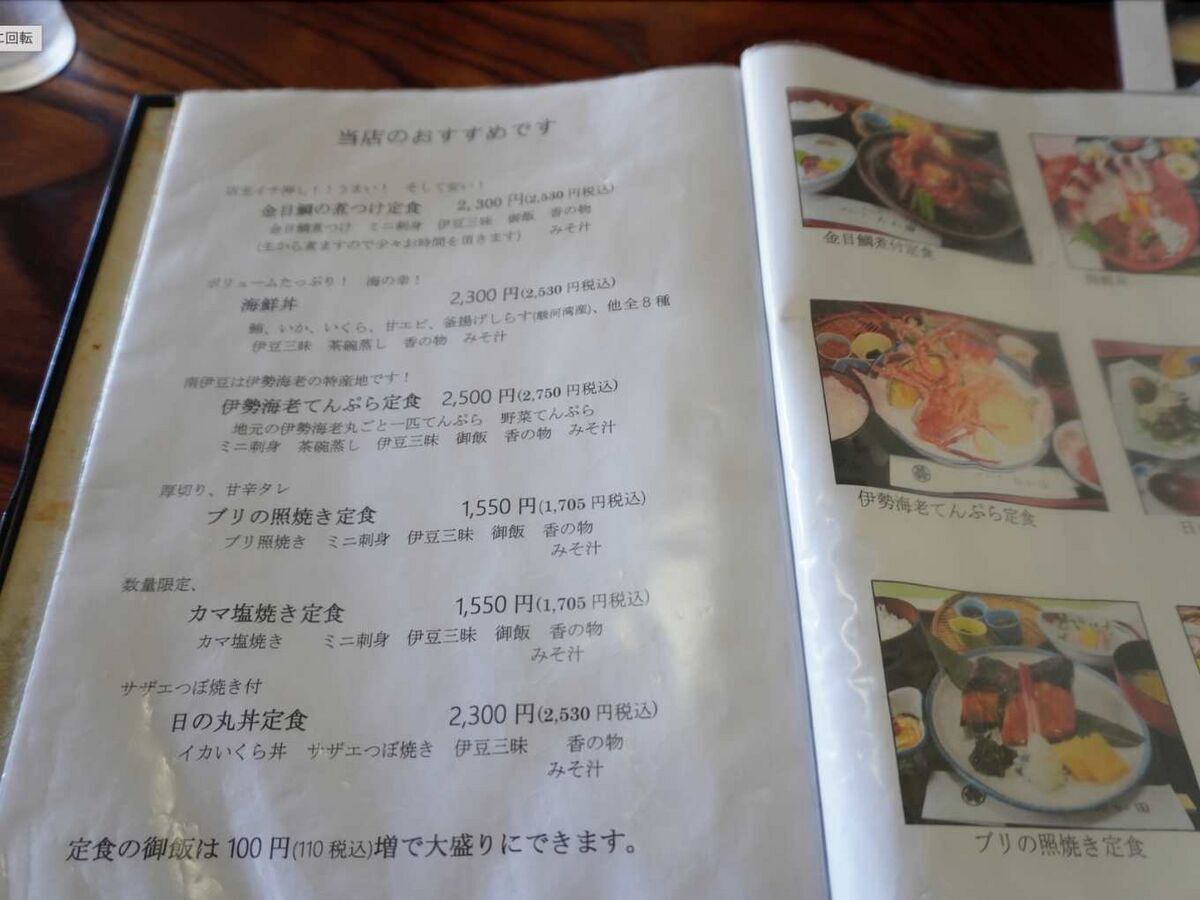 に回転
当店のおすすめです
店主イチ押し！！うまい！　そして安い！
金目鯛の煮つけ定食　2,300円(2,530円税込)
金目鯛煮つけ　ミニ刺身　伊豆三昧　御飯　香の物
みそ汁
(生から煮ますので少々お時間を頂きます)
ボリュームたっぷり！　海の幸！
海鮮丼　2,300円(2,530円税込)
鮪、いか、いくら、甘エビ、釜揚げしらす(駿河湾産)、他全８種
伊豆三昧　茶碗蒸し　香の物　みそ汁
南伊豆は伊勢海老の特産地です！
伊勢海老てんぷら定食　2,500円(2,750円税込)
地元の伊勢海老丸ごと一匹てんぷら　野菜てんぷら
ミニ刺身　茶碗蒸し　伊豆三昧　御飯　香の物　みそ汁
厚切り、甘辛タレ
ブリの照焼き定食　1,550円(1,705円税込)
ブリ照焼き　ミニ刺身　伊豆三昧　御飯　香の物
みそ汁
数量限定、
カマ塩焼き定食　1,550円(1,705円税込)
カマ塩焼き　ミニ刺身　伊豆三昧　御飯　香の物
みそ汁
サザエつぼ焼き付
日の丸丼定食　2,300円(2,530円税込)
イカいくら丼　サザエつぼ焼き　伊豆三昧　香の物
みそ汁
定食の御飯は100円(110税込)増で大盛りにできます。
金目鯛煮付定食
海鮮丼
伊勢海老てんぷら定食
日
ブリの照焼き定食